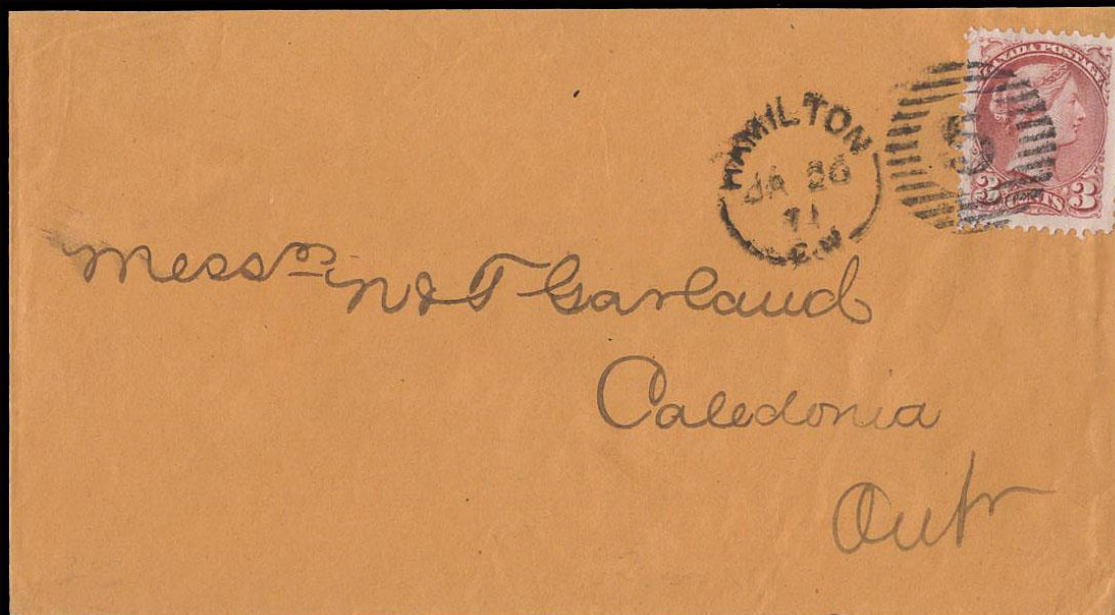 CANADA POSTAGE
3 CENTS 3
5
HAMILTON
JA 26
71
C.W
Messrs N & T Garland
Caledonia
Ontr